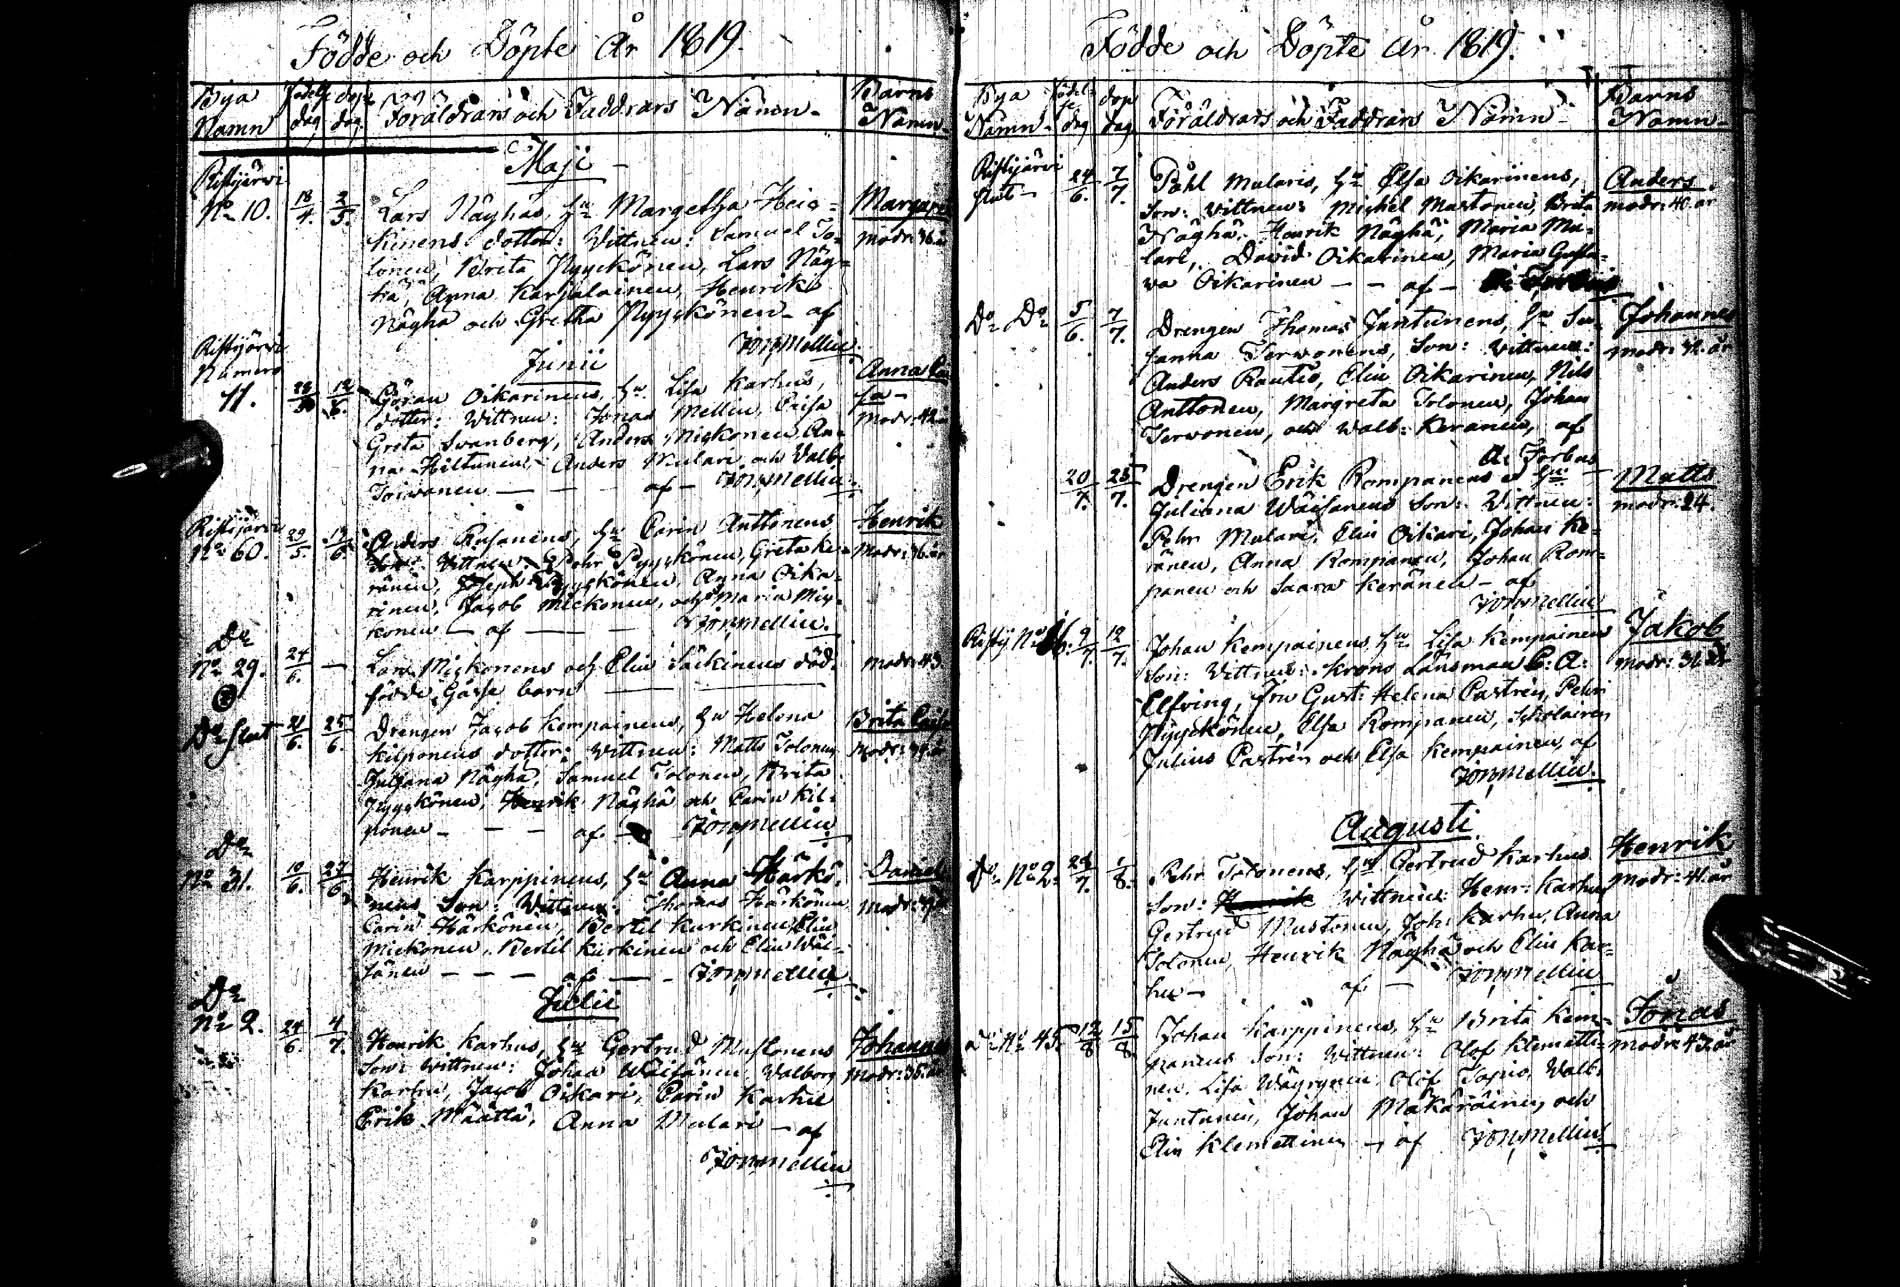 Födde och Döpte År 1819.
Bya Namn
Födelse dag
dop dag
Föräldrars och Faddrars Namn
Barns Namn
Maji
Ristijärvi No 10.
18/4. 2/5.
Lars Näghäs, hu Margetha Heig=
kinens dotter: Wittnen: Samuel To=
lonen, Brita Pyykönen, Lars Näg=
hä, Anna Karjalainen, Henrik
Nägha och Gretha Pyykönen af
Jon Mellin
Margare
modr: 36 år
Junii
Ristijärvi Numero 11.
12/6.
Göran Oikarinens, hu Lisa Karhus,
dotter: Wittnen: Jonas Mellin, Caisa
Greta Svanberg, Anders Mickonen An=
na Hiltunen, Anders Mulari och Valb:
Toivonen — — — af — Jon Mellin
Anna Cai
sa
modr: 42 år
Ristijärvi No 60.
29/5. 6.
Anders Rusanens, hu Carin Anttonens
Son: Wittnen: Pehr Pyykönen, Greta Ke=
ränen, Joseph Pyykönen, Anna Oika=
rinen, Jacob Mickonen, och Maria Mic=
konen — af — — Jon Mellin.
Henrik
Modr: 36 år
Do No 29.
24/6. —
Lars Mickonens och Elin Säckinens död=
födde Gosse barn
modr: 43.
Do slut
21/6. 25/6.
Drengen Jacob Kempainens, hu Helena
Kilponens dotter: Wittnen: Matts Tolonen,
Juliana Näghä, Samuel Tolonen, Brita
Pyykönen, Henrik Näghä och Carin Kil=
ponen — — — af — Jon Mellin
Brita Cajsa
Modr: år
Do No 31.
10/6. 27/6.
Henrik Karppinens, hu Anna Härkö=
nens Son: Wittnen: Thomas Härkönen
Carin Härkönen, Bertil Kurkinen, Elin
Mickonen, Bertil Kurkinen och Elin Wäi=
sänen — — — af — — Jon Mellin
Daniel
Modr:
Julii
Do No 2.
24/6. 4/7.
Henrik Karhus, hu Gertrud Mustonens
Son: Wittnen: Johan Wäisänen, Walborg
Karhu, Jacob Oikari, Carin Karhu
Erik Määttä, Anna Mulari — af
Jon Mellin
Johannes
Modr: 36 år
Födde och Döpte År 1819.
Bya Namn
Födelse dag
dop dag
Föräldrars och Faddrars Namn
Barns Namn
Ristijärvi slut
24/6. 7/7.
Påhl Mularis, hu Elsa Oikarinens,
Son: Wittnen: Michel Mustonen, Brita
Näghä, Henrik Näghä, Maria Mu=
lari, David Oikarinen, Maria Gusta=
va Oikarinen — — af — A: Forbus
Anders
modr: 40. år
Do Do
5/6. 7/7.
Drengen Thomas Juntunens, hu Su=
sanna Terwonens, Son: Wittnen:
Anders Rautio, Elin Oikarinen, Nils
Anttonen, Margreta Tolonen, Johan
Terwonen, och Walb: Keränen, af
A: Forbus
Johannes
modr: 32. år
20/7. 25/7.
Drengen Erik Rompanens hu
Juliana Wäisänens Son: Wittnen:
Pehr Mulari, Elin Oikari, Johan Ke=
ränen, Anna Rompanen, Johan Rom=
panen och Saara Keränen — af
Jon Mellin
Matts
modr: 24.
Ristij No 26.
9/7. 12/7.
Johan Kempainens hu Lisa Kempainens
Son: Wittnen: Krons Länsman C: A:
Elfving, fru Gust: Helena Castrén, Pehr
Pyykönen, Elsa Rompanen, Scholairen
Julius Castrén och Elsa Kempainen, af
Jon Mellin.
Jakob
modr: 31. år
Augusti
Do No 2.
24/7. 1/8.
Pehr Tolonens, hu Gertrud Karhus
Son: Wittnen: Henr: Karhu
Gertrud Mustonen, Joh: Karhu, Anna
Tolonen, Henrik Näghä och Elin Kar=
hu — af — Jon Mellin
Henrik
modr: 41. år
Do No 45.
12/8 15/8
Johan Karppinens, hu Brita Kem=
panens Son: Wittnen: Olof Klemetti=
nen, Lisa Wäyrynen, Olof Tapio, Walb:
Juntunen, Johan Mäkäräinen, och
Elin Klemettinen — af Jon Mellin
Jonas
modr: 43. år